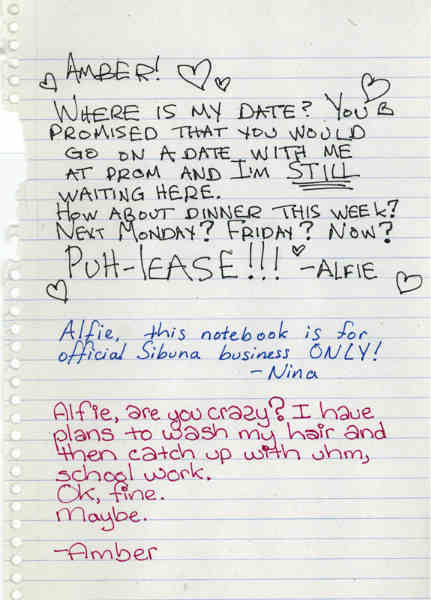 AMBER!
WHERE IS MY DATE? YOU
PROMISED THAT YOU WOULD
GO ON A DATE WITH ME
AT PROM AND I'M STILL
WAITING HERE.
HOW ABOUT DINNER THIS WEEK?
NEXT MONDAY? FRIDAY? NOW?
PUH-LEASE!!! -ALFIE
Alfie, this notebook is for
official Sibuna business ONLY!
-Nina
Alfie, are you crazy? I have
plans to wash my hair and
then catch up with uhm,
school work.
Ok, fine.
Maybe.
-Amber